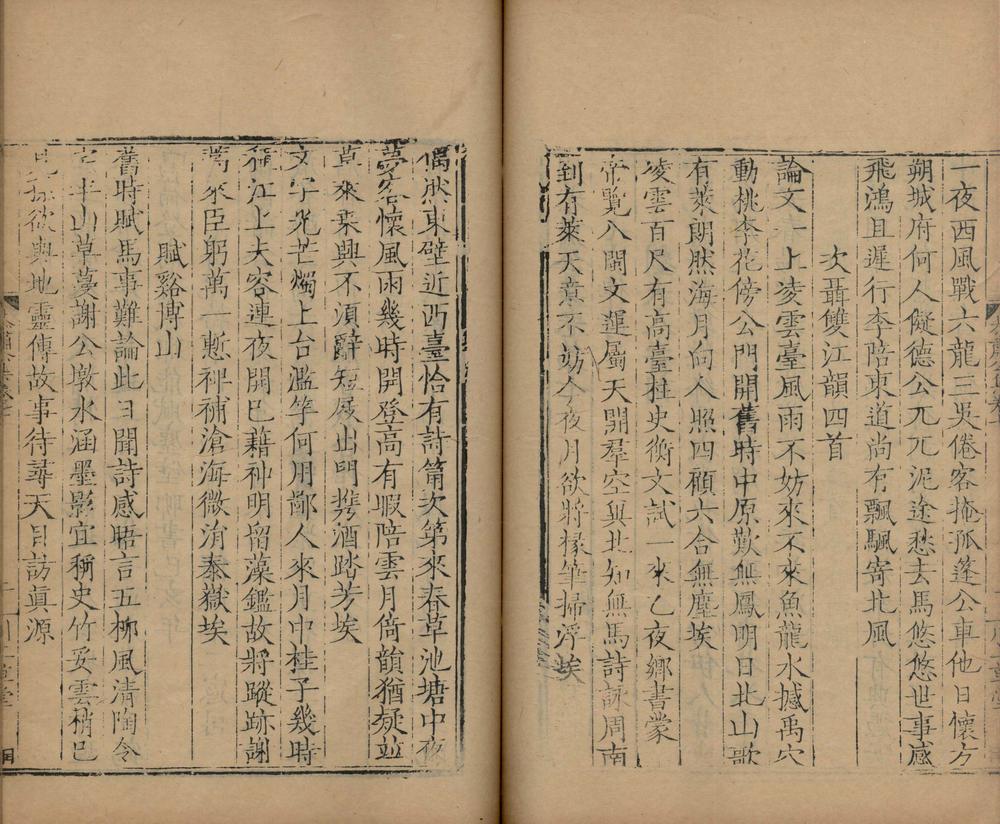 一夜西風戰六龍三吳倦客掩孤蓬公車他日懷方
朔城府何人儗德公兀兀泥途愁去馬悠悠世事感
飛鴻且遲行李陪東道尚有飄颻寄北風
次聶雙江韻四首
論文一上凌雲臺風雨不妨來不來魚龍水撼禹穴
動桃李花傍公門開舊時中原歎無鳳明日北山歌
有萊朗然海月向人照四顧六合無塵埃
凌雲百尺有高臺柱史衡文試一來乙夜鄉書蒙
帝覽八閩文運屬天開羣空冀北知無馬詩詠周南
到有萊天意不妨今夜月欲將椽筆掃浮埃
偶然東壁近西臺恰有詩筩次第來春草池塘中夜
夢客懷風雨幾時開登高有暇陪雲月倚韻猶疑竝
草萊乘興不須辭短屐出門攜酒踏芳埃
文字光芒燭上台濫竽何用鄙人來月中桂子幾時
種江上夫容連夜開已藉神明留藻鑑故將蹤跡謝
蒿萊臣躬萬一慙裨補滄海微涓泰嶽埃
賦谿博山
舊時賦馬事難論此日聞詩感晤言五柳風清陶令
宅半山草蔓謝公墩水涵墨影宜稱史竹妥雲梢已
欲與地靈傳故事待尋天目訪眞源